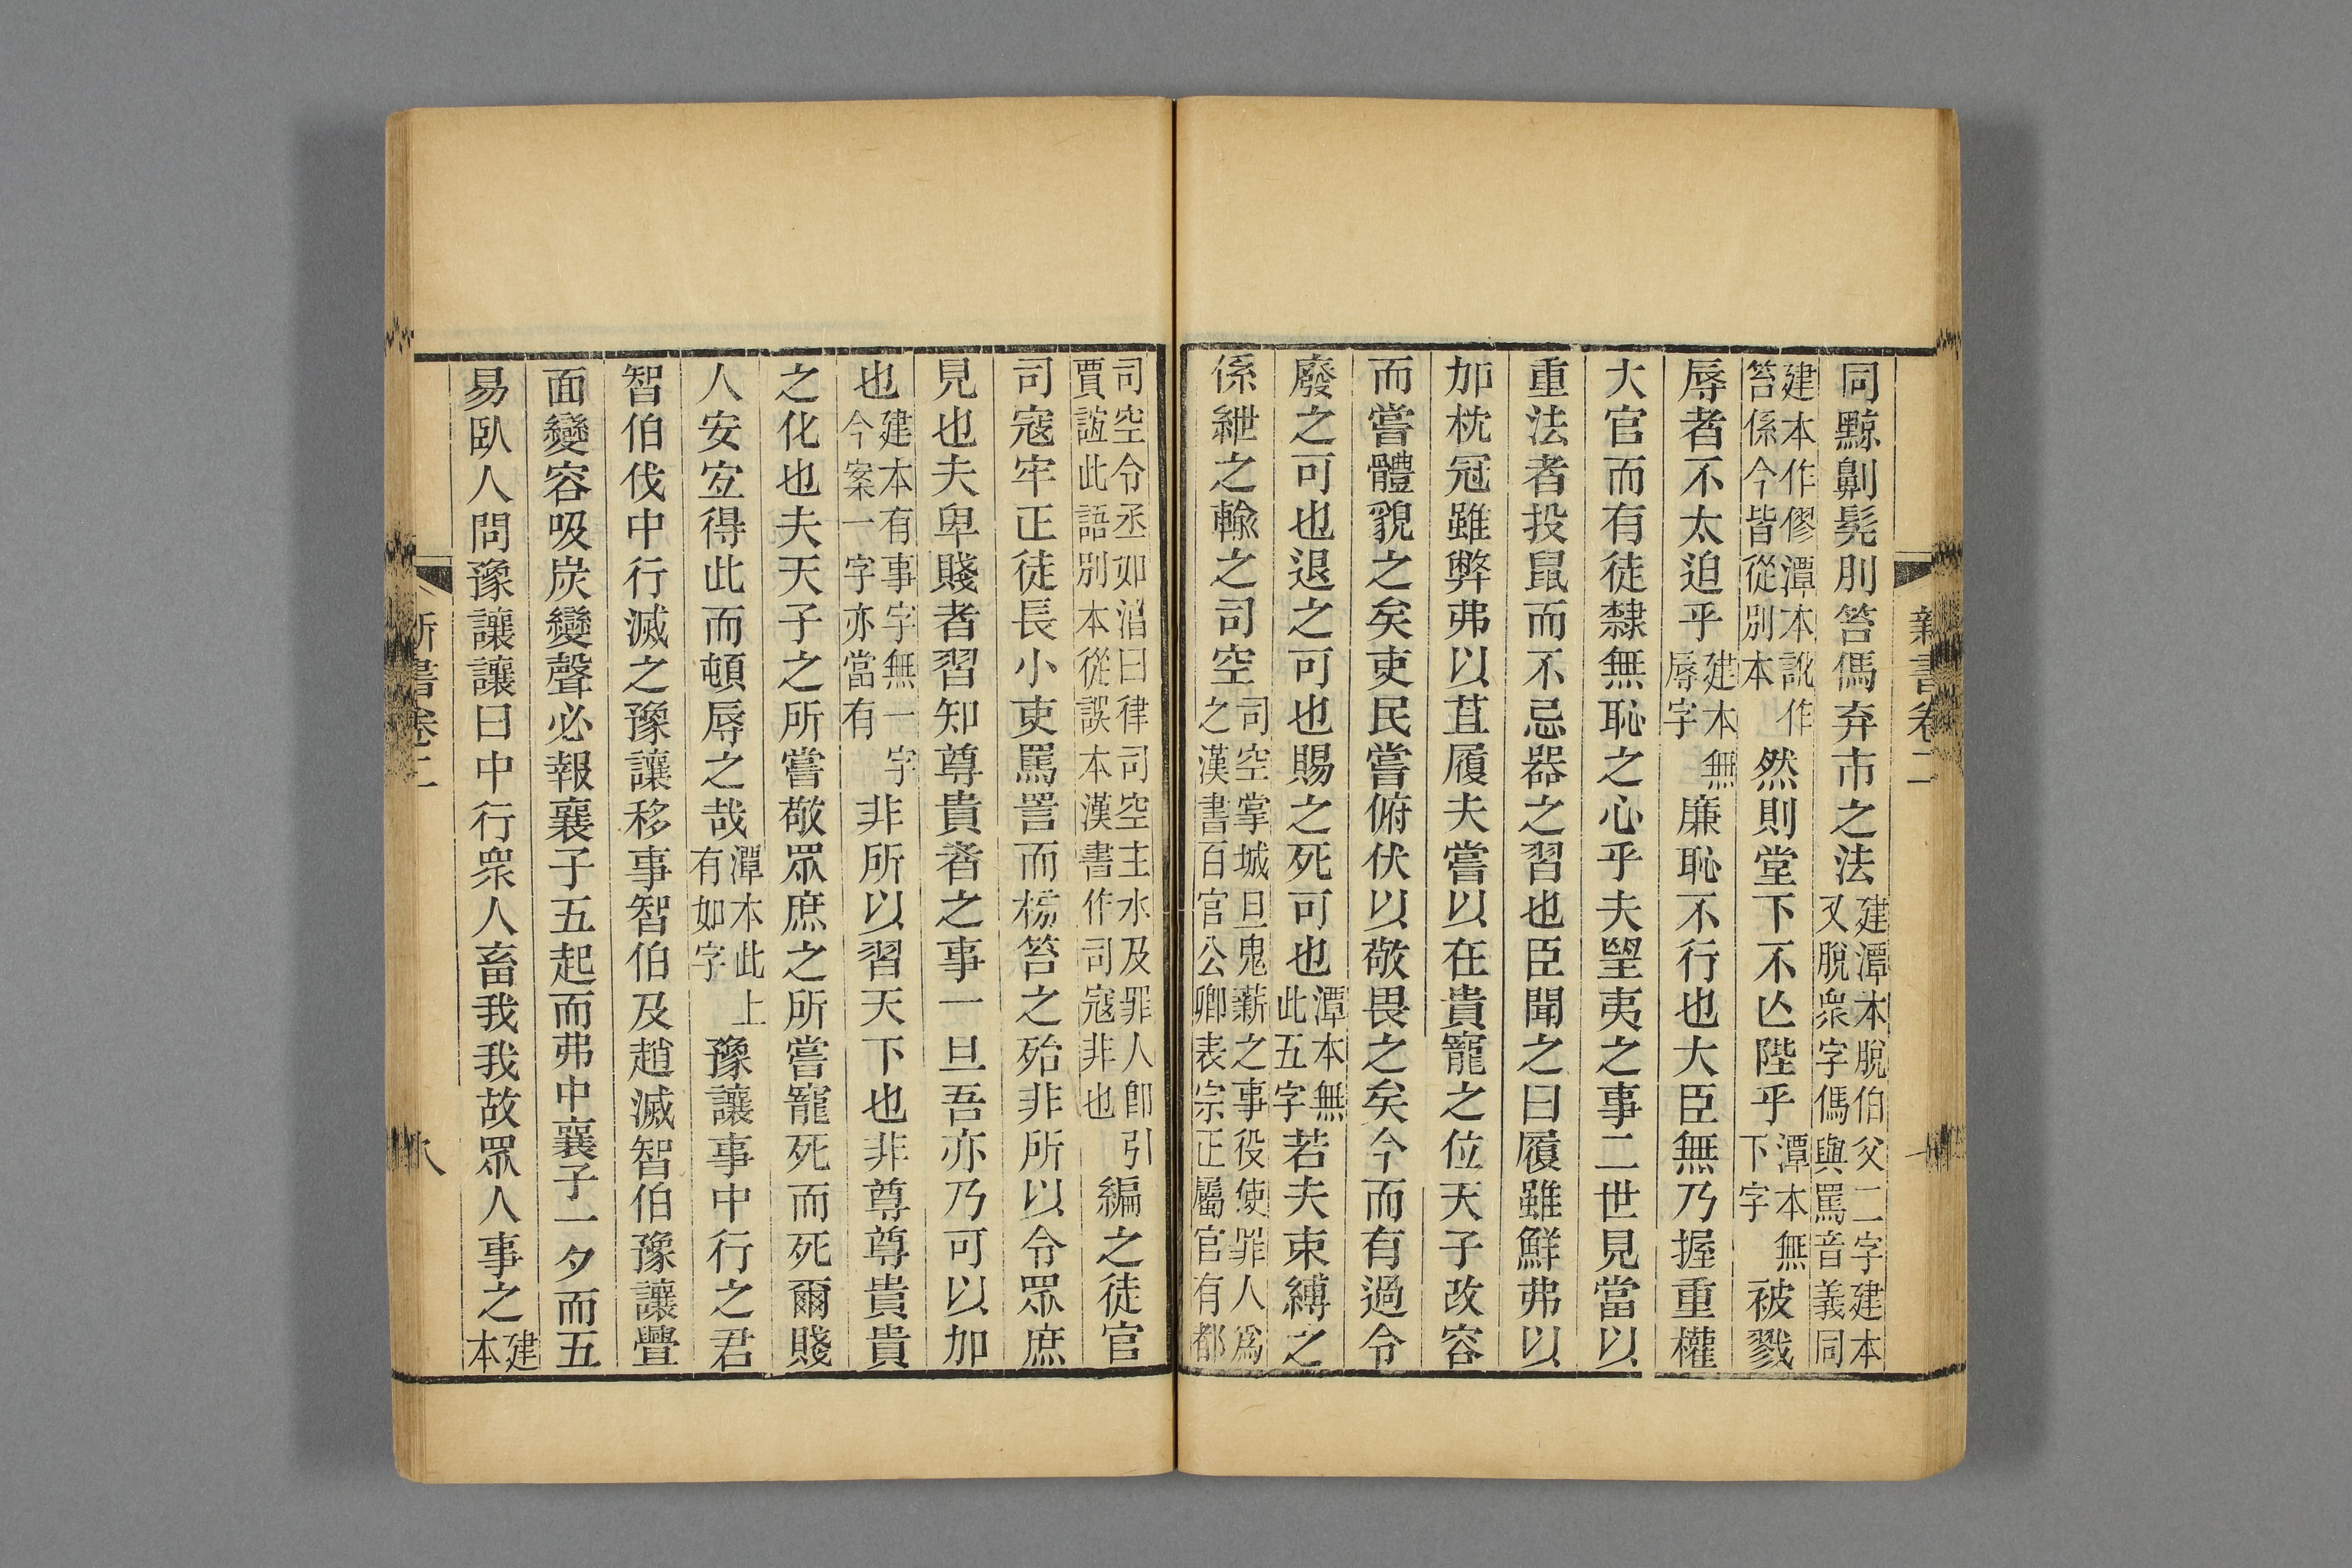 新書卷二
同黥劓髡刖笞傌弃市之法建潭本脫伯父二字建本又脫衆字傌與罵音義同
建本作僇潭本訛作笞係今皆從別本然則堂下不亾陛乎潭本無下字被戮
辱者不太迫乎建本無辱字廉恥不行也大臣無乃握重權
大官而有徒隸無恥之心乎夫望夷之事二世見當以
重法者投鼠而不忌器之習也臣聞之曰履雖鮮弗以
加枕冠雖弊弗以苴履夫嘗以在貴寵之位天子改容
而嘗體貌之矣吏民嘗俯伏以敬畏之矣今而有過令
廢之可也退之可也賜之死可也潭本無此五字若夫束縛之
係紲之輸之司空司空掌城旦鬼薪之事役使罪人爲之漢書百官公卿表宗正屬官有都
司空令丞如淳曰律司空主水及罪人卽引賈誼此語別本從誤本漢書作司寇非也編之徒官
司寇牢正徒長小吏罵詈而榜笞之殆非所以令眾庶
見也夫卑賤者習知尊貴者之事一旦吾亦乃可以加
也建本有事字無一字今案一字亦當有非所以習天下也非尊尊貴貴
之化也夫天子之所嘗敬眾庶之所嘗寵死而死爾賤
人安宐得此而頓辱之哉潭本此上有如字豫讓事中行之君
智伯伐中行滅之豫讓移事智伯及趙滅智伯豫讓釁
面變容吸炭變聲必報襄子五起而弗中襄子一夕而五
易臥人問豫讓讓曰中行衆人畜我我故眾人事之建本
新書卷二
八